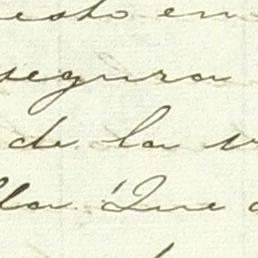 esto en
segura
de la
lla Que